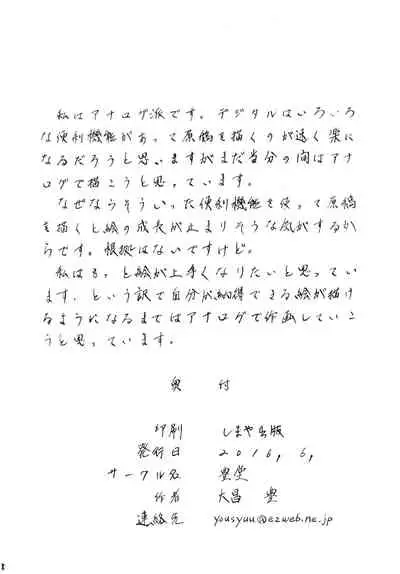 私はアナログ派です。デジタルはいろいろ
な便利機能があって原稿を描くのが速く楽に
なるだろうと思いますがまだ当分の間はアナ
ログで描こうと思っています。
なぜならそういった便利機能を使って原稿
を描くと絵の成長が止まりそうな気がするか
らです。根拠はないですけど。
私はもっと絵が上手くなりたいと思ってい
ます。という訳で自分が納得できる絵が描け
るようになるまではアナログで作画していこ
うと思っています。
奥付
印刷 しまや出版
発行日 2016,6,
サークル名 豊堂
作者 大昌 豊
連絡先 yousyuu@ezweb.ne.jp